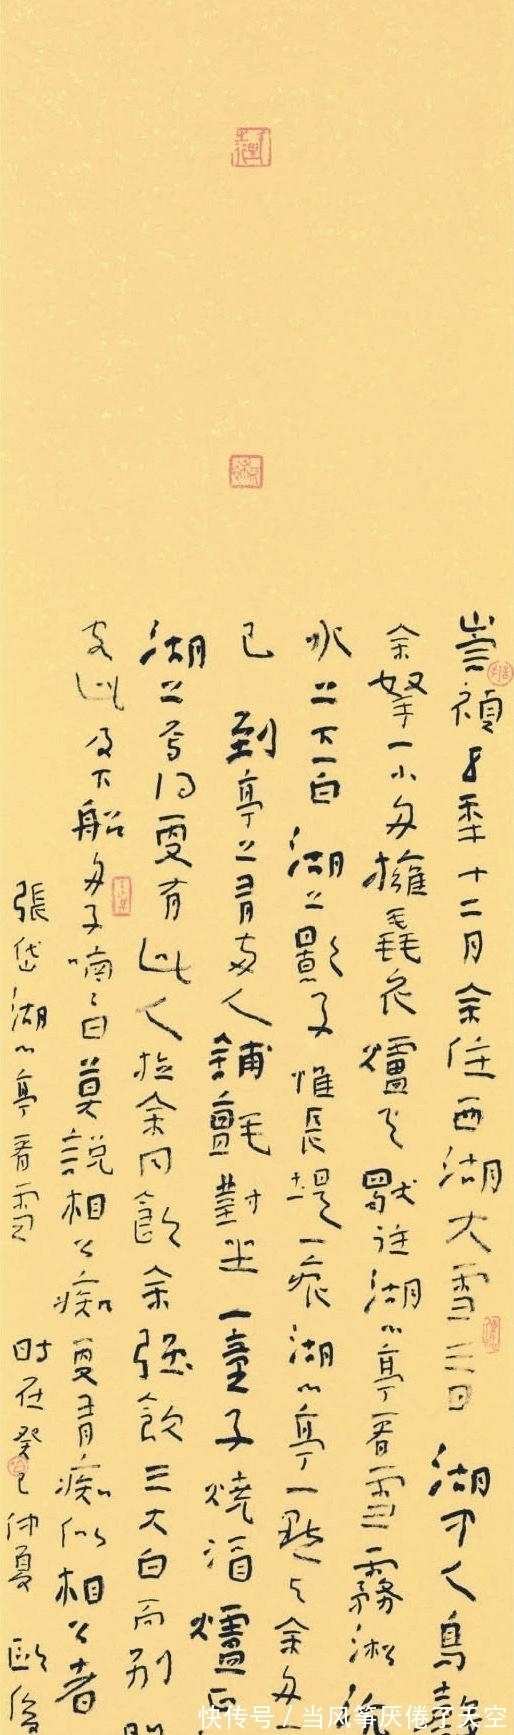 崇禎五年十二月余住西湖大雪三日湖中人鳥聲
余拏一小舟擁毳衣爐火獨往湖心亭看雪霧淞沆
水上下一白湖上影子惟長堤一痕湖心亭一點與余舟一
已到亭上有兩人鋪氈對坐一童子燒酒爐正
湖上焉得更有此人拉余同飲余强飲三大白而别
客此及下船舟子喃喃曰莫説相公痴更有痴似相公者
張岱湖心亭看雪 時在癸巳仲夏 歐
快传号 / 当风筝厌倦了天空